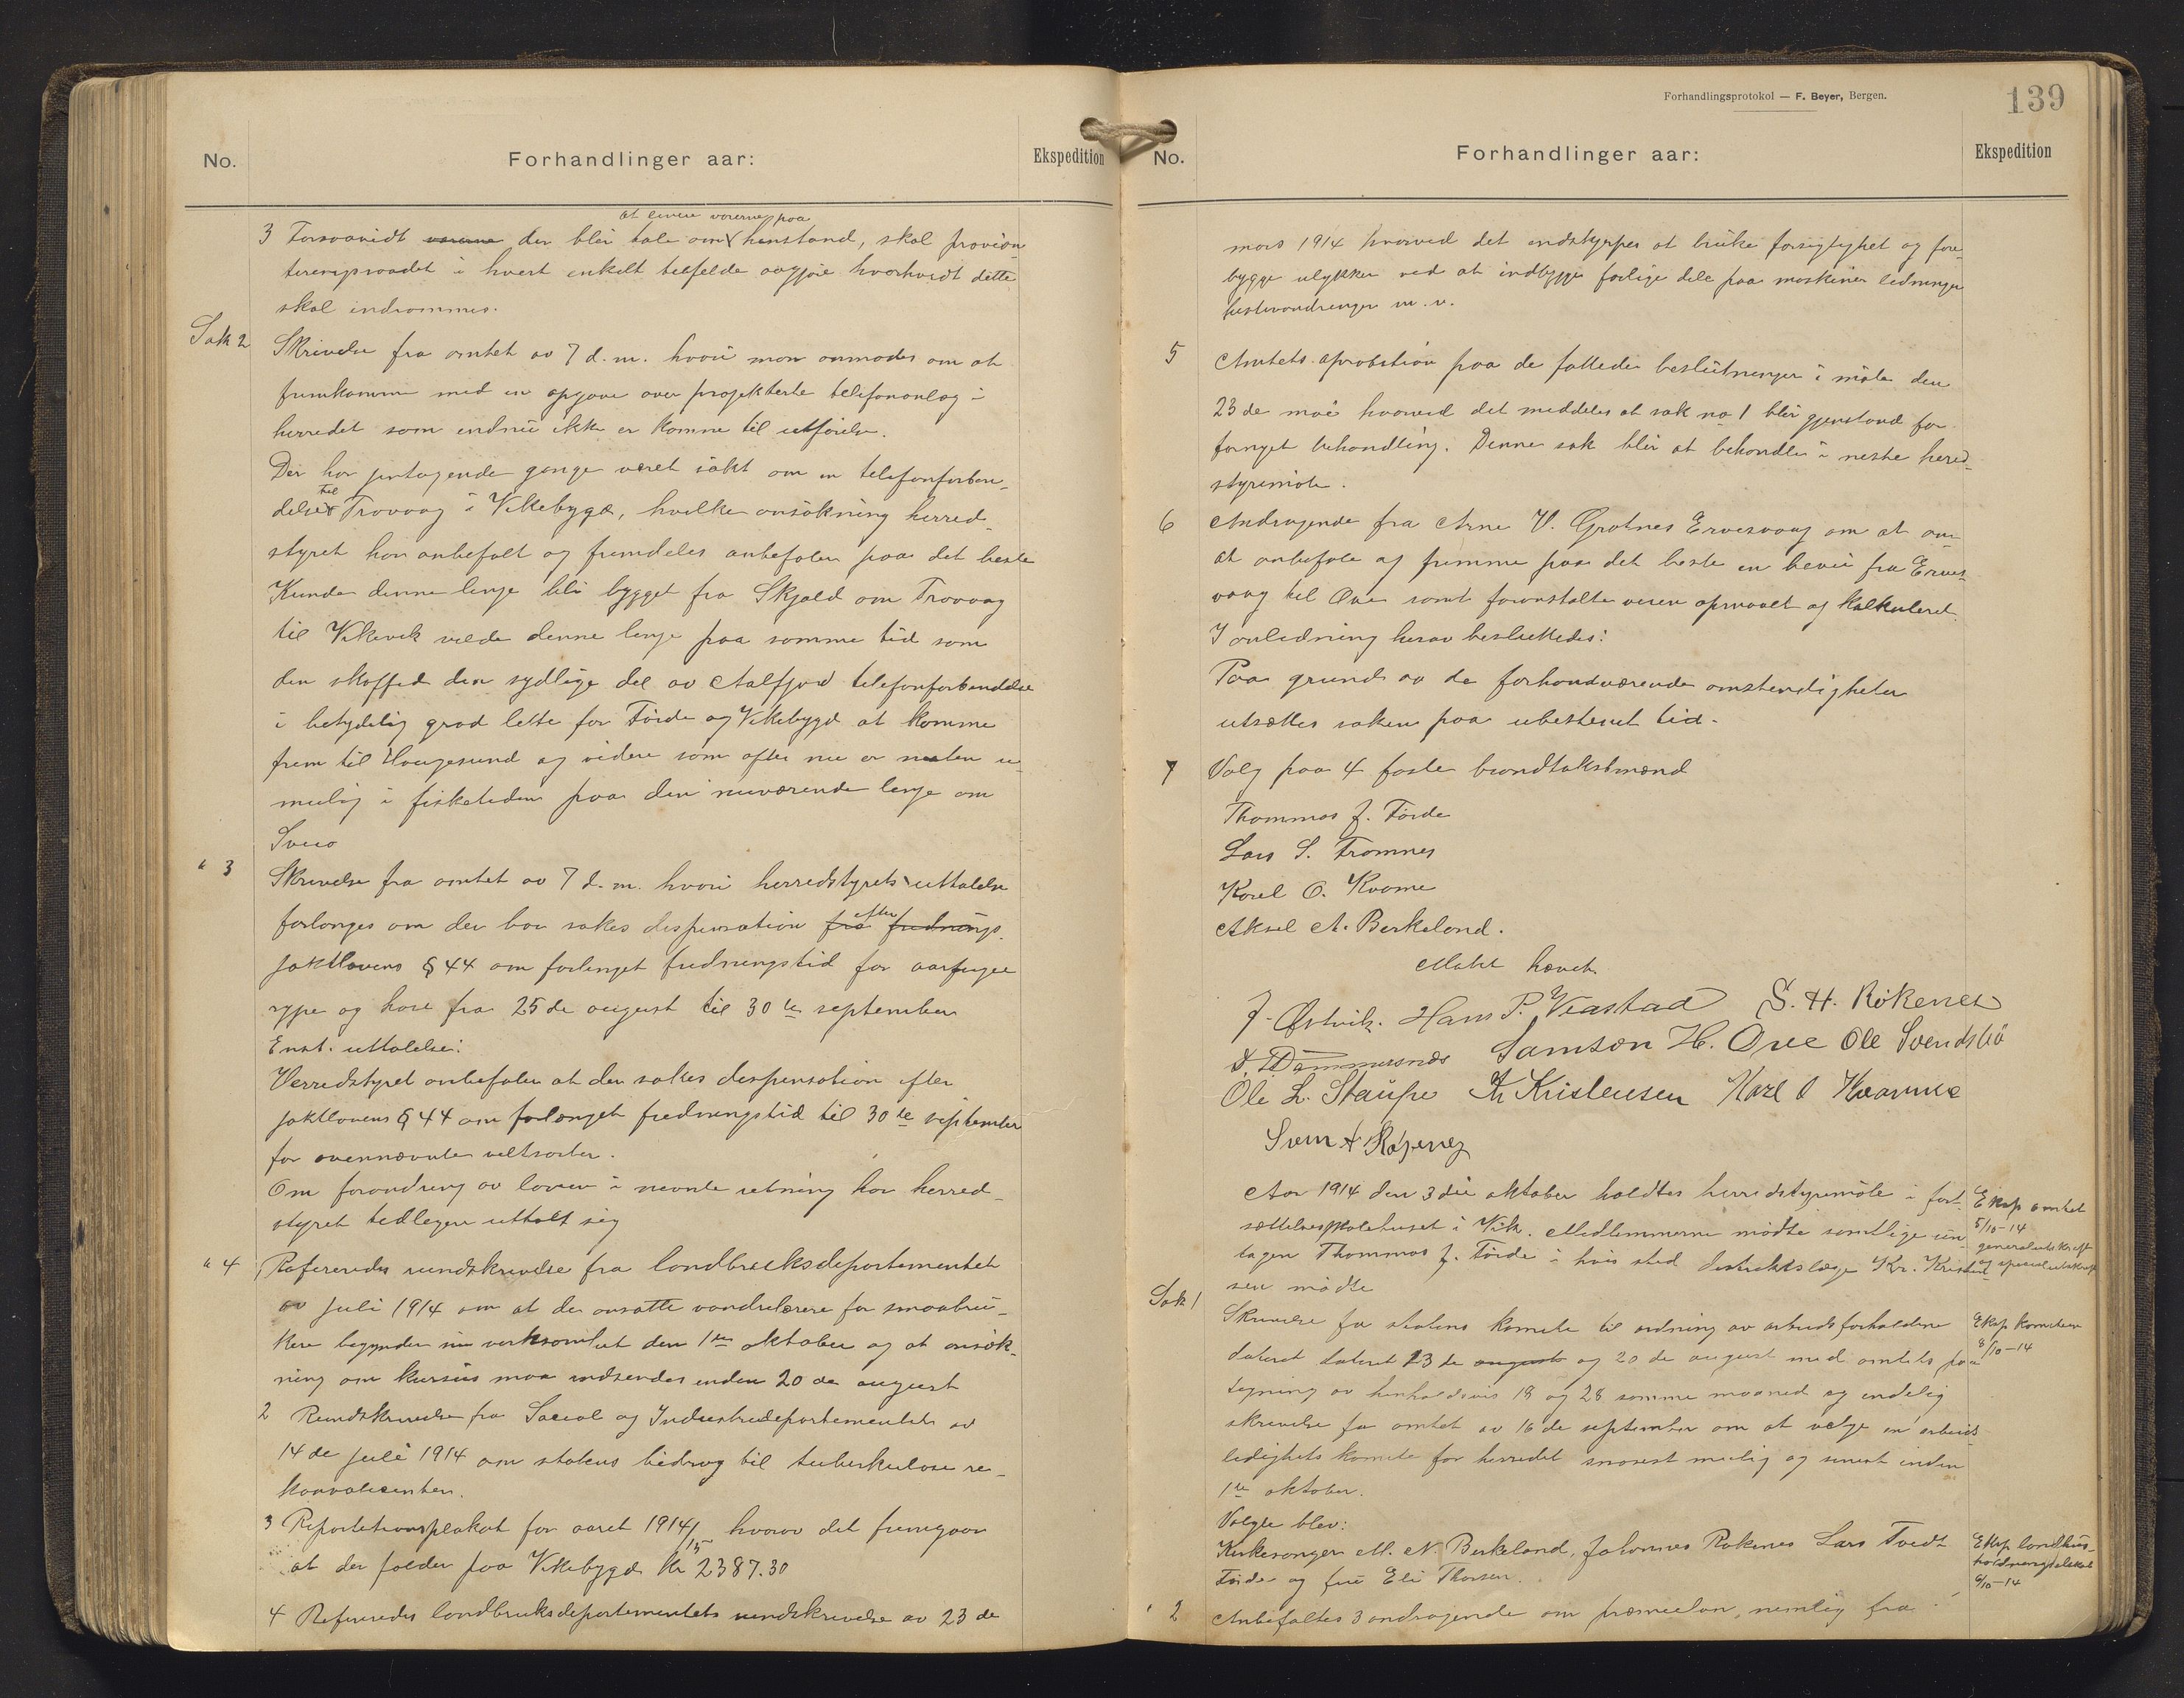 No.
Forhandlinger aar:
Ekspedition
at levere varerne paa
3 Forsaavidt varerne der blir tale om henstand, skal provian
teringsraadet i hvert enkelt tilfelde avgjøre hvorhvidt dette
skal indrømmes.
Sak 2 Skrivelse fra amtet av 7 d. m. hvori man anmodes om at
fremkomme med en opgave over projekterte telefonanlæg i
herredet som endnu ikke er komne til utførelse.
Der har gjentagende gange været søkt om en telefonforbin-
delse til Trovaag i Vikebygd, hvilken ansøkning herred-
styret har anbefalt og fremdeles anbefaler paa det beste
Kunde denne linje bli bygget fra Skjold om Trovaag
til Vikevik vilde denne linje paa samme tid som
den skaffed den sydlige del av Aalfjord telefonforbindelse
i betydelig grad lette for Førde og Vikebygd at komme
frem til Haugesund og videre som ofte nu er nesten u-
mulig i fisketiden paa den nuværende linje om
Sveio
" 3 Skrivelse fra amtet av 7 d. m. hvori herredstyrets uttalelse
forlanges om der bør søkes dispensation fra efter frednings
jaktlovens § 44 om forlenget fredningstid for aarfugl
rype og hare fra 25de august til 30te september
Enst. uttalelse:
Herredstyret anbefaler at der søkes dispensation efter
jaktlovens § 44 om forlænget fredningstid til 30te september
for ovennævnte viltsorter.
Om forandring av loven i nevnte retning har herred-
styret tidligere uttalt sig
" 4 1 Refereredes rundskrivelse fra landbruksdepartementet
av juli 1914 om at de ansatte vandrelærere for smaabru-
kere begynder sin verksomhet den 1ste oktober og at ansøk-
ning om kursus maa indsendes inden 20de august
2 Rundskrivelse fra Social og Industridepartementet av
14de juli 1914 om statens bidrag til tuberkulose re-
konvalesenter.
3 Repartitionsplakat for aaret 1914/15 hvorav det fremgaar
at der falder paa Vikebygd kr 2387.30
4 Refereredes landbruksdepartementets rundskrivelse av 23de
Forhandlingsprotokol — F. Beyer, Bergen.
139
No.
Forhandlinger aar:
Ekspedition
mars 1914 hvorved det indskjerpes at bruke forsigtighet og fore-
bygge ulykker ved at indbygge farlige dele paa maskiner ledninger
hestevandringer m. v.
5 Amtets aprobation paa de fattede beslutninger i møte den
23de mai hvorved det meddeles at sak no 1 blir gjenstand for
fornyet behandling. Denne sak blir at behandle i neste herred-
styremøte.
6 Andragende fra Arne V. Grotnes Ervesvaag om at
at anbefale og fremme paa det beste en bevei fra Erves
vaag til Øve samt foranstalte veien opmaalt og kalkuleret.
I anledning herav besluttedes:
Paa grund av de forhaandværende omstendigheter
utsættes saken paa ubestemt tid.
7 Valg paa 4 faste brandtakstmænd
Thommas J. Førde
Lars S. Tromnes
Karel O. Kvame
Aksel A. Berkeland.
Møtet hævet
J. Østvik. Hans P. Veastad S. H. Røkenes
Dommersnes Samson H. Øvre Ole Svendsbø
Ole L. Staupe Kr Kristensen Karl O Kvamme
Svein A Røkenes
Aar 1914 den 3die oktober holdtes herredstyremøte i fort-
sættelsesskolehuset i Vik. Medlemmerne mødte samtlige und-
tagen Thommas J. Førde i hvis sted distriktslæge Kr. Kristen
sen mødte
Eksp amtet
5/10-14
generalutskrift
og specialutskrift
Sak 1
Skrivelse fra statens komite til ordning av arbeidsforholdene
dateret dateret 13de august og 20de august med amtets paa-
tegning av henholdsvis 18 og 28 samme maaned og endelig
skrivelse fra amtet av 16de september om at vælge en arbeids
ledighets komite for herredet snarest mulig og senest inden
1ste oktober.
Eksp komiteen
8/10-14
Valgte blev:
Kirkesanger M. N. Berkeland, Johannes Røkenes Lars Tvedt
Førde og fru Eli Thorsen.
Eksp landhus-
holdningselskab
6/10-14
" 2 Anbefaltes 3 andragende om præmielaan, nemlig fra